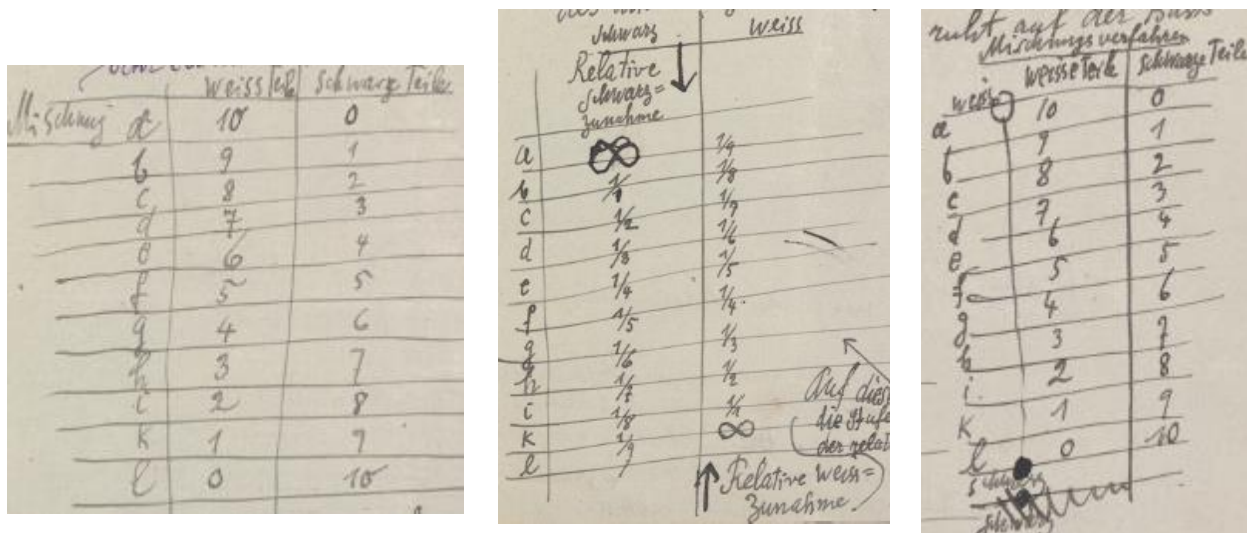 weiss Teile schwarze Teile
Mischung a 10 0
b 9 1
c 8 2
d 7 3
e 6 4
f 5 5
g 4 6
h 3 7
i 2 8
k 1 9
l 0 10
schwarz weiss
Relative
schwarz=
zunahme
a ∞ 1/9
b 1/1 1/8
c 1/2 1/7
d 1/3 1/6
e 1/4 1/5
f 1/5 1/4
g 1/6 1/3
h 1/7 1/2
i 1/8 1/1
k 1/9 ∞
l
Auf diese
die Stufe
der relat
Relative weiss=
Zunahme
ruht auf der Basis
Mischungsverfahren
weisse Teile schwarze Teile
weiss
a 10 0
b 9 1
c 8 2
d 7 3
e 6 4
f 5 5
g 4 6
h 3 7
i 2 8
k 1 9
l 0 10
schwarz
schwarz